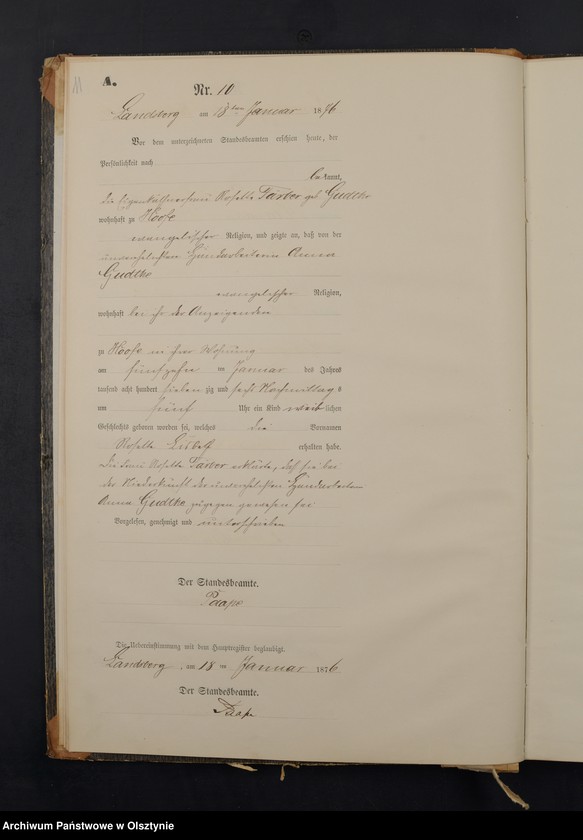 11
A.
Nr. 10
Landsberg am 18ten Januar 1876
Vor dem unterzeichneten Standesbeamten erschien heute, der
Persönlichkeit nach
bekannt,
die Eigenkäthnerfrau Rosette Färber geb. Gudtke
wohnhaft zu Hoofe
evangelischer Religion, und zeigte an, daß von der
unverehelichten Handarbeiterin Anna
Gudtke
evangelischer Religion,
wohnhaft bei ihr der Anzeigenden
zu Hoofe in ihrer Wohnung
am fünfzehnten Januar des Jahres
tausend acht hundert sieben zig und sechs Nachmittags
um fünf Uhr ein Kind weiblichen
Geschlechts geboren worden sei, welches die Vornamen
Rosette erhalten habe.
Die Frau Rosette Färber erklärte, daß sie bei
der Niederkunft der unverehelichten Handarbeiterin
Anna Gudtke zugegen gewesen sei
Vorgelesen, genehmigt und unterschrieben
Der Standesbeamte.
Paape
Die Uebereinstimmung mit dem Hauptregister beglaubigt.
Landsberg, am 18ten Januar 1876
Der Standesbeamte.
Paape
Archiwum Państwowe w Olsztynie